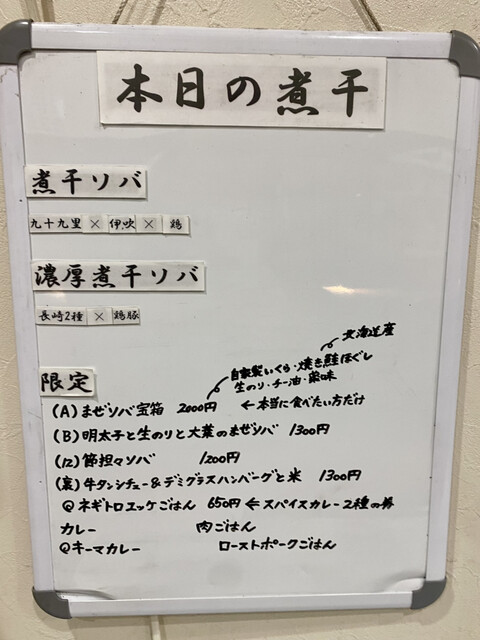 本日の煮干
煮干ソバ
九十九里 × 伊吹 × 鶏
濃厚煮干ソバ
長崎2種 × 鶏豚
北海道産
限定
自家製いくら・焼き鮭ほぐし
生のり・チー油・薬味
(A) まぜソバ宝箱 2000円 ←本当に食べたい方だけ
(B) 明太子と生のりと大葉のまぜソバ 1300円
(12) 節担々ソバ 1200円
(裏) 牛タンシチュー&デミグラスハンバーグと米 1300円
@ネギトロユッケごはん 650円 ←スパイスカレー2種の券
カレー 肉ごはん
@キーマカレー ローストポークごはん